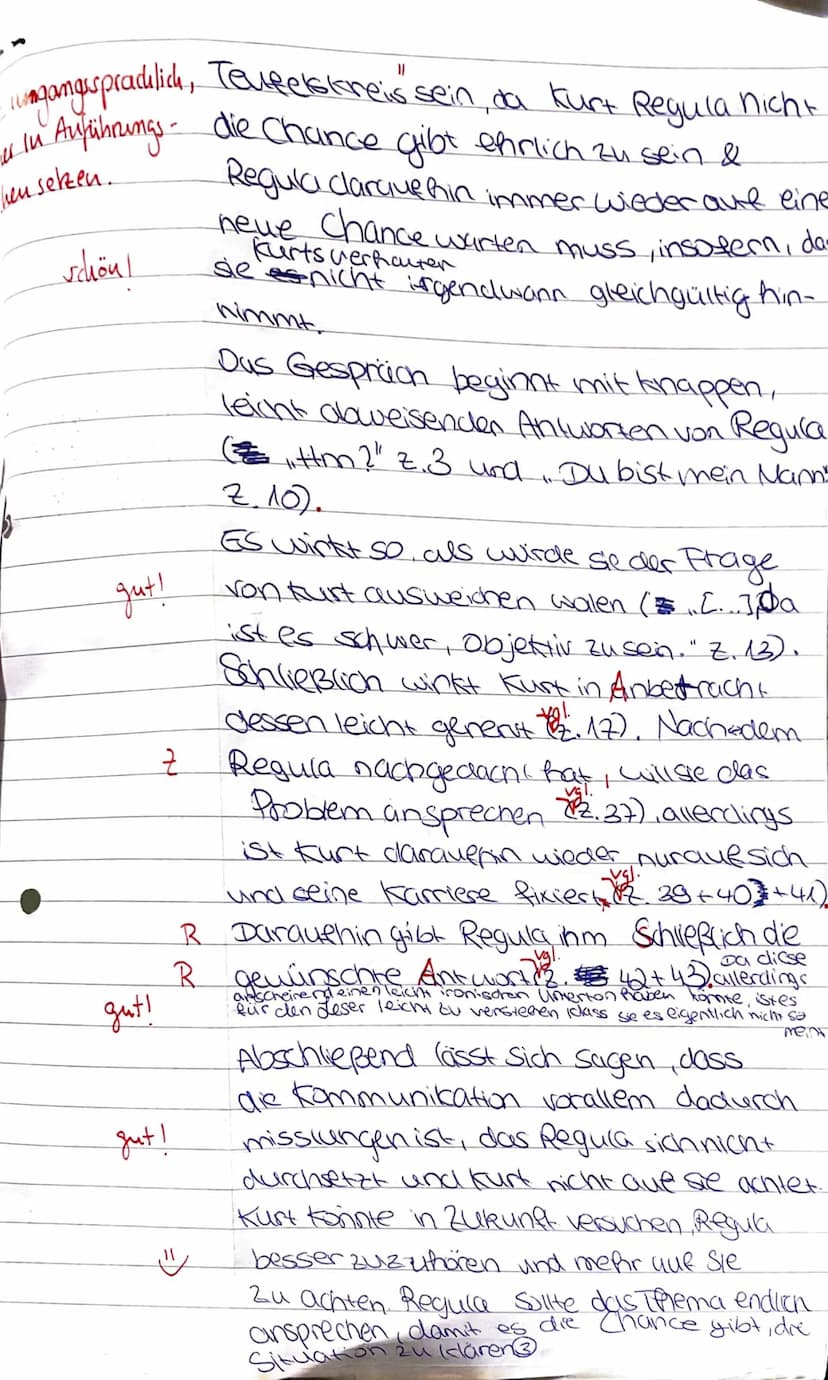 umgangssprachlich, Teufelskreis" sein, da Kurt Regula nicht
in Anführungs- die Chance gibt ehrlich zu sein &
setzen. Regula daraufhin immer wieder auf eine
neue Chance warten muss, insofern, da
Kurts verhalten
schön! sie es nicht irgendwann gleichgültig hin-
nimmt.
Das Gespräch beginnt mit knappen,
leicht abweisenden Antworten von Regula
( „Hm?" Z.3 und „Du bist mein Mann"
Z. 10).
Es wirkt so, als würde sie der Frage
gut! von Kurt ausweichen wolen ( „[...] Da
ist es schwer, Objektiv zu sein." Z. 13).
Schließlich wirkt Kurt in Anbetracht
dessen leicht genervt (vgl. Z. 17). Nachdem
Z Regula nachgedacht hat, will sie das
Problem ansprechen (vgl. Z. 37), allerdings
ist Kurt daraufhin wieder nur auf sich
und seine Karriere fixiert (vgl. Z. 39 + 40 + 41).
R Daraufhin gibt Regula ihm Schließlich die
R gewünschte Antwort (vgl. Z. 42 + 43). Da diese allerdings
anscheinend einen leicht ironischen Unterton haben könnte, ist es
gut! für den Leser leicht zu verstehen, dass sie es eigentlich nicht so
meint
Abschließend lässt sich sagen, dass
die Kommunikation vorallem dadurch
gut! misslungen ist, das Regula sich nicht
durchsetzt und Kurt nicht auf sie achtet.
Kurt könnte in Zukunft versuchen, Regula
besser zuzuhören und mehr auf Sie
zu achten. Regula sollte das Thema endlich
ansprechen, damit es die Chance gibt, die
Situation zu klären